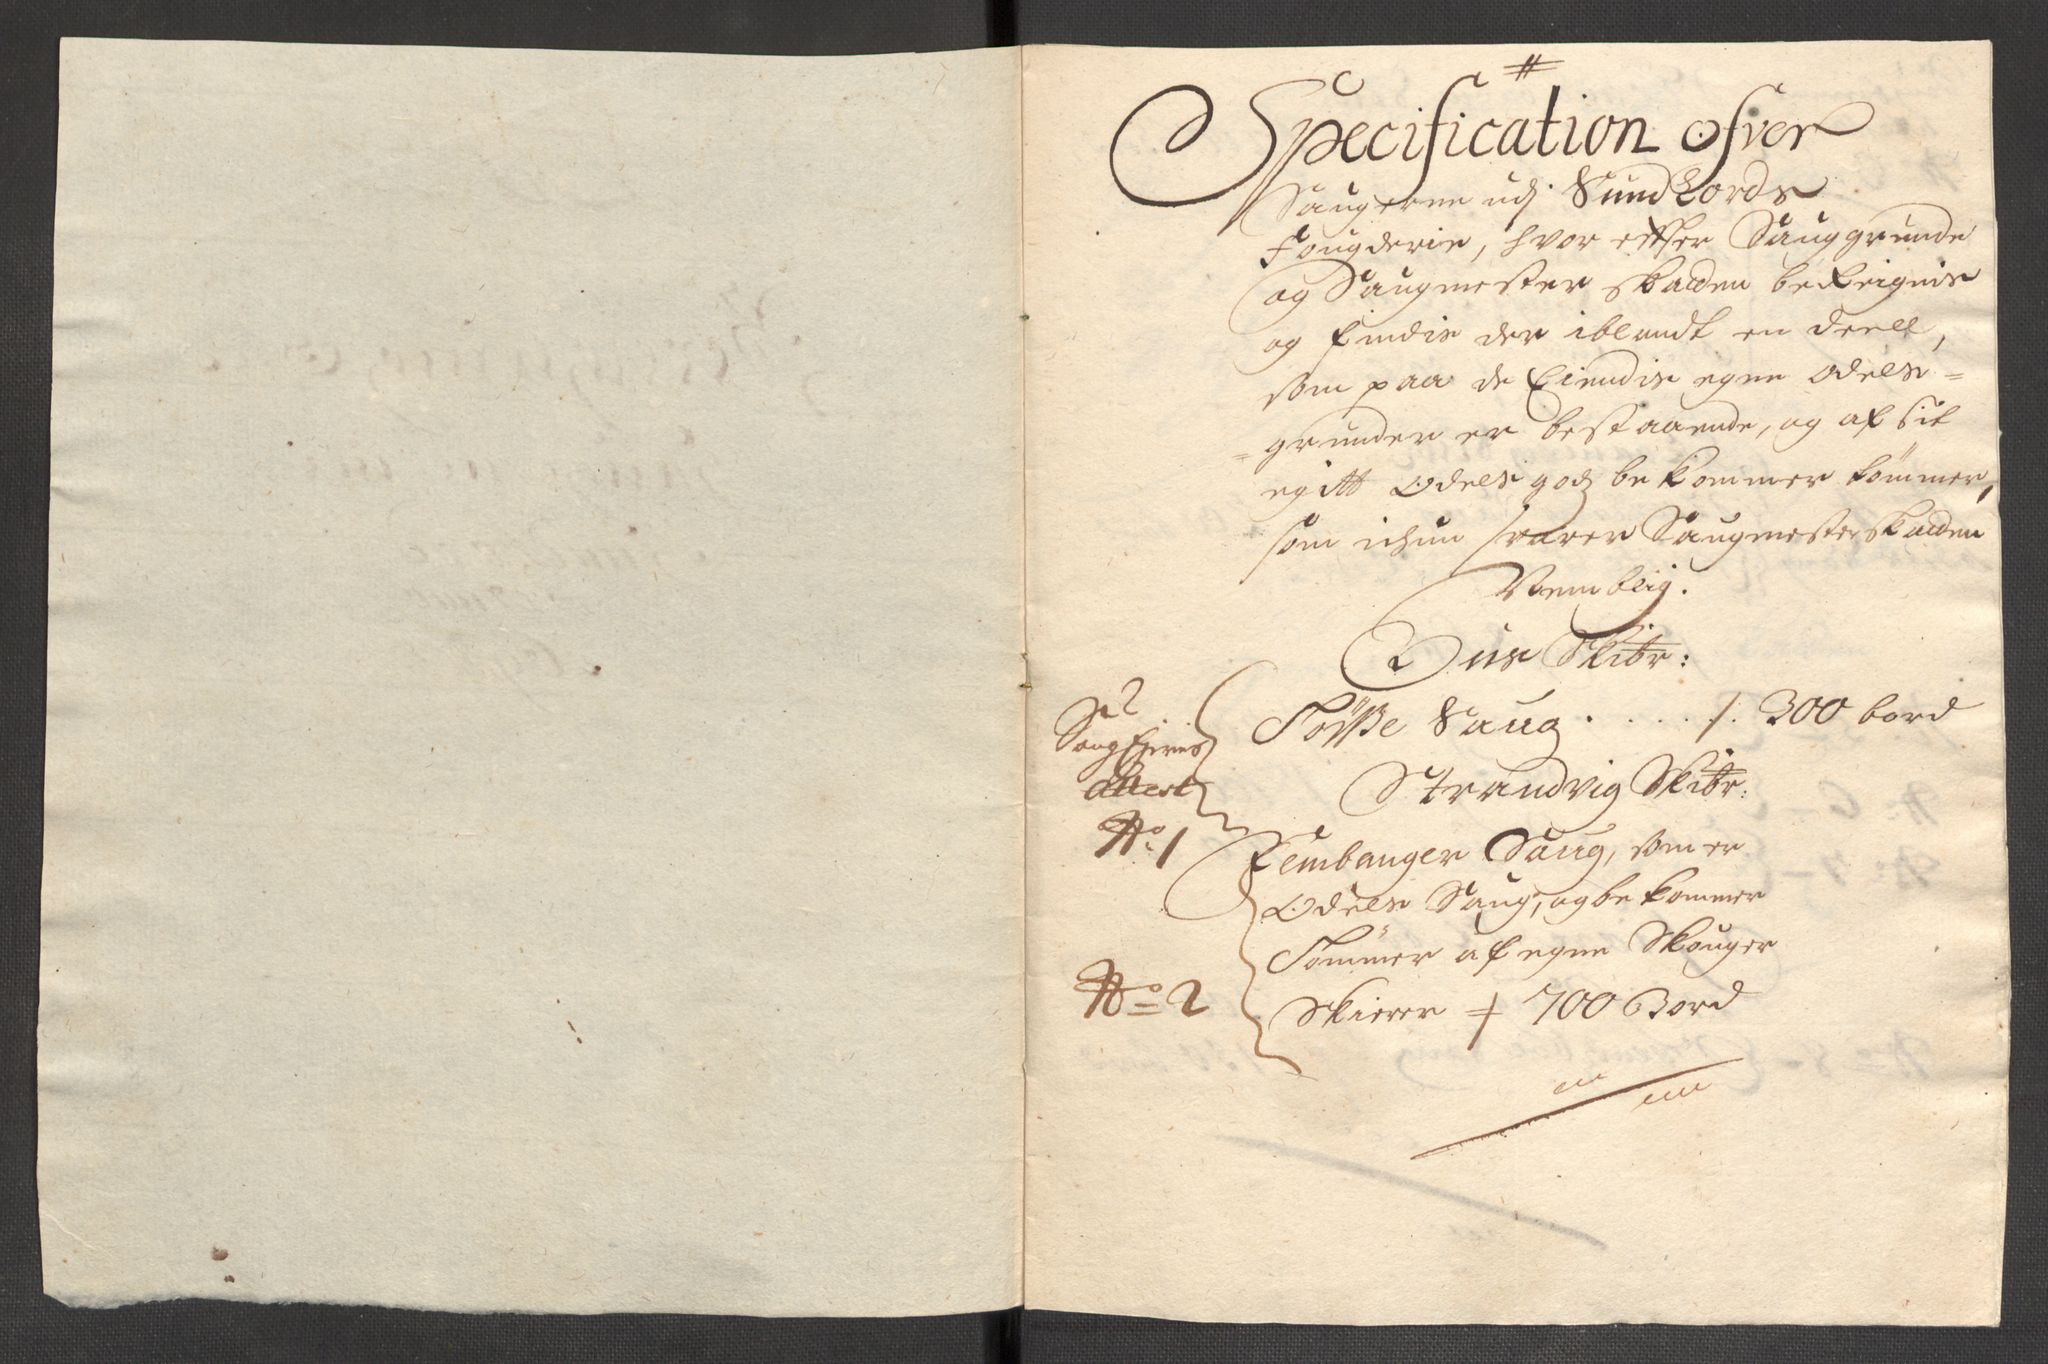 Specification ofver
Saugerne udj Sundhords
Fougderie, hvor effter Sauggrunde
og Saugmester skatten beReignis
og findis der iblandt en deell,
som paa de Eiendis egne odels-
-grunder er bestaaende, og af sit
egitt Odels godz bekommer tømmer,
som ichun svarer Saugmesterskatten
Nemblig.
Ous Skibr:
Saug Ejernes
Attest
Tøsse Saug . . . . /. 300 bord
Strandvig Skibr:
No. 1
Fembanger Saug, som er
Odels Saug, og bekommer
Tømmer af egne Skouger
No. 2
Skierer 700 Bord